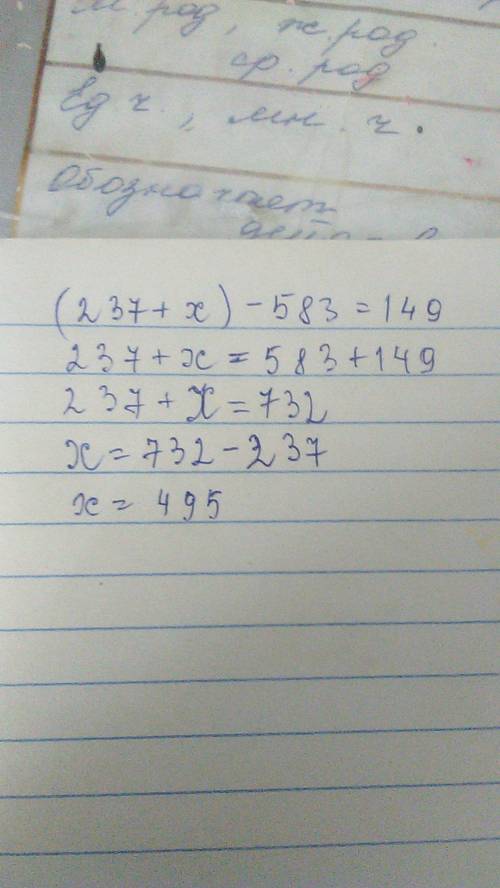 м.род, ж.род
ср. род
Ед ч., мн. ч.
Обозначает
(237+x)-583=149
237+x=583+149
237+x=732
x=732-237
x=495